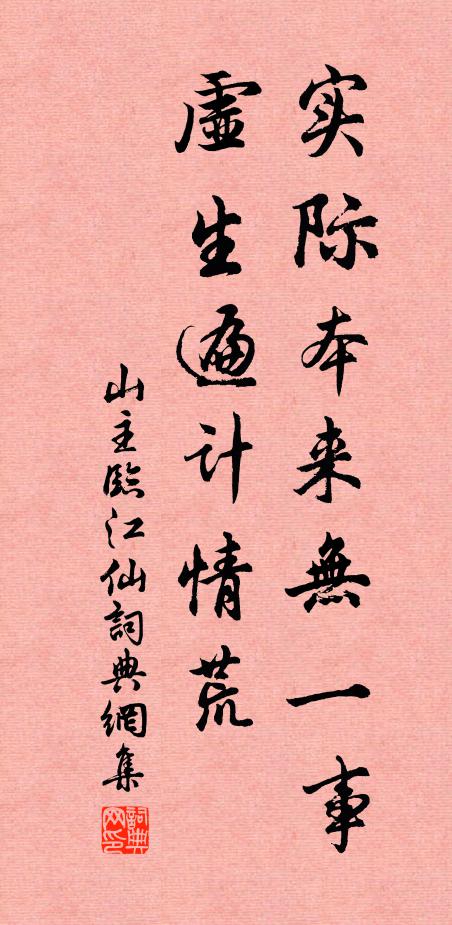 实际本来無一事
虚生遍计情荒
山主臨江仙詞典網集
詞典网印